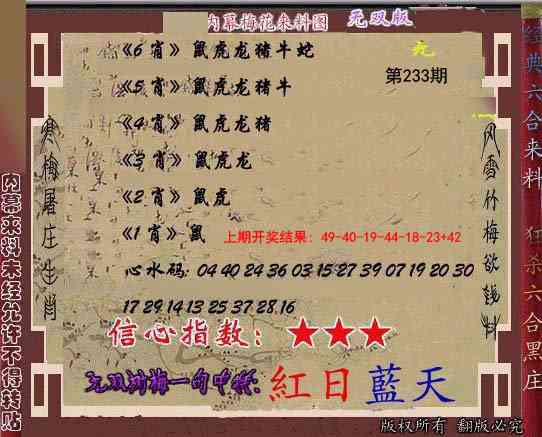 内幕梅花来料图 无双版
《6 肖》 鼠虎龙猪牛蛇
第233期
《5 肖》 鼠虎龙猪牛
《4 肖》 鼠虎龙猪
《3 肖》 鼠虎龙
《2 肖》 鼠虎
《1 肖》 鼠
上期开奖结果: 49-40-19-44-18-23+42
心水码: 04 40 24 36 03 15 27 39 07 19 20 30
17 29 14 13 25 37 28.16
信心指数: ★★★
紅日藍天
版权所有 翻版必究
寒梅屠庄生肖
风雪竹梅欲钱料
内幕来料未经允许不得转贴
经典六合来料 狂杀六合黑庄